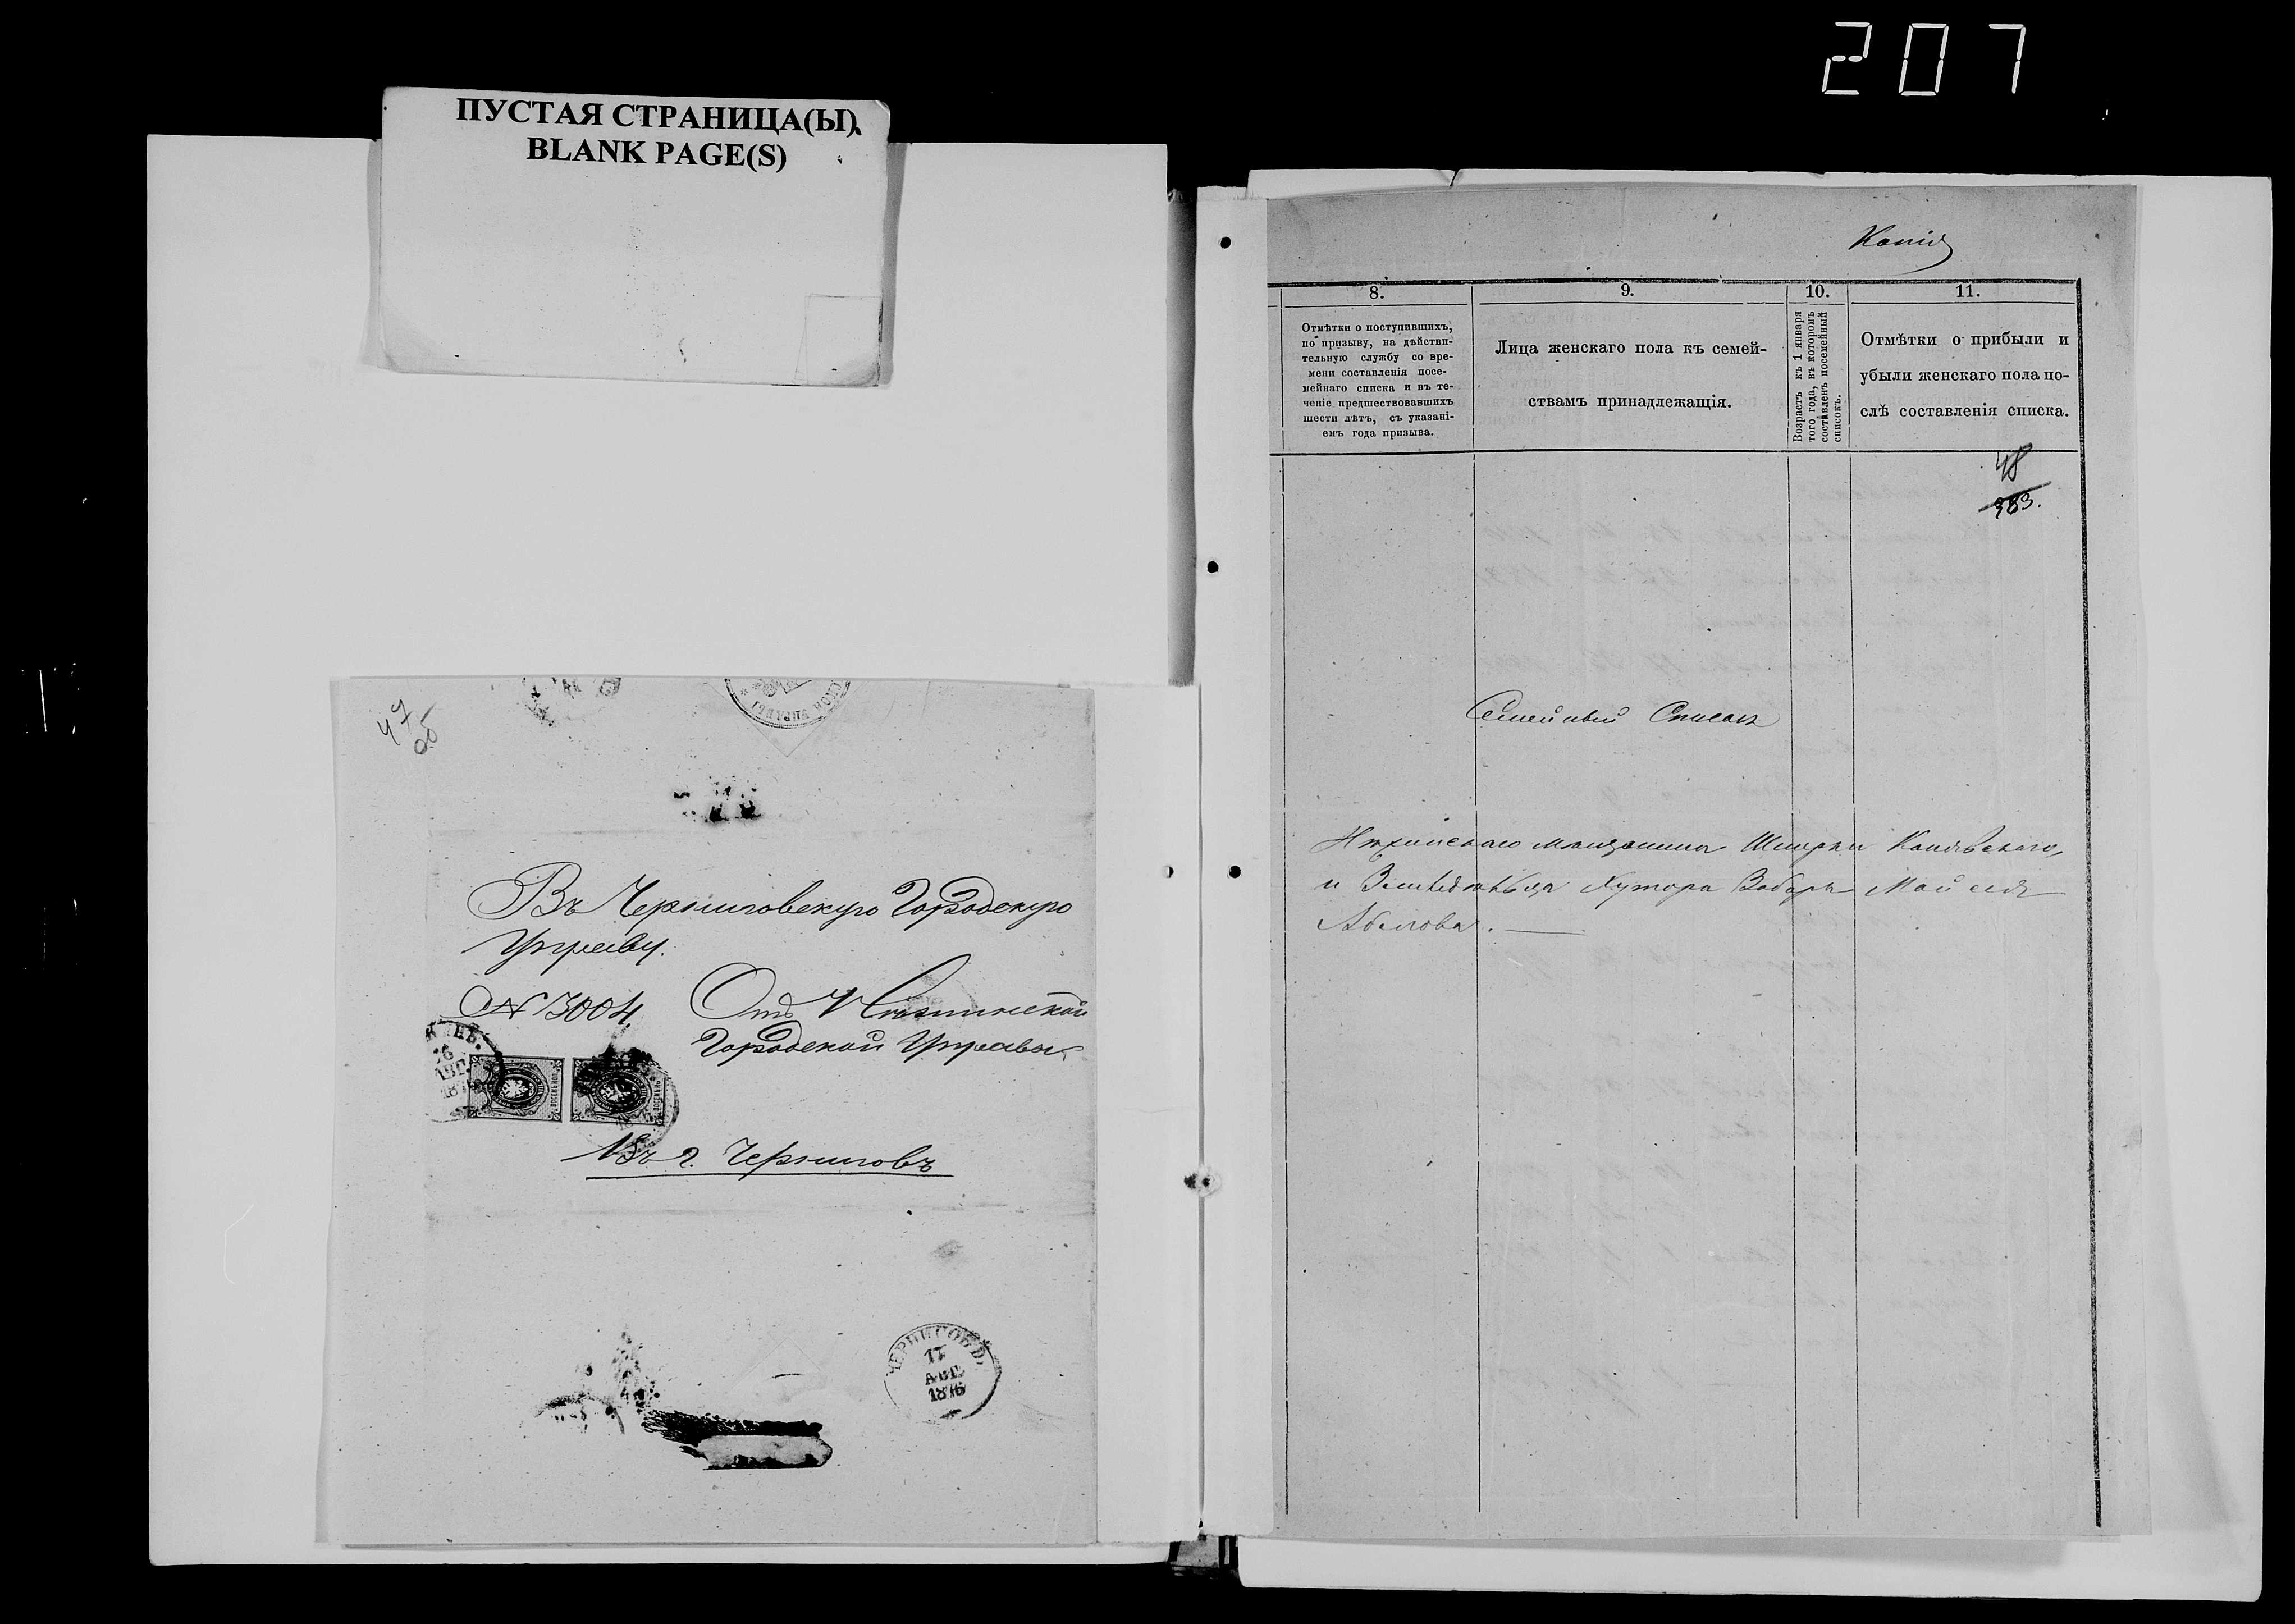 207
ПУСТАЯ СТРАНИЦА(Ы)
BLANK PAGE(S)
47
об
СКОЙ УПРАВЫ
Въ Черниговскую Городскую
Управу.
№ 3004.
Отъ Нѣжинской
Городской Управы
16
АВГ.
187
Въ г. Черниговъ
ЧЕРНИГОВЪ
17
АВГ.
1876
Копія
8.
9.
10.
11.
Отмѣтки о поступившихъ,
по призыву, на дѣйстви-
тельную службу со вре-
мени составленія посе-
мейнаго списка и въ те-
ченіе предшествовавшихъ
шести лѣтъ, съ указані-
емъ года призыва.
Лица женскаго пола къ семей-
ствамъ принадлежащія.
Возрастъ къ 1 января
того года, въ которомъ
составленъ посемейный
списокъ.
Отмѣтки о прибыли и
убыли женскаго пола по-
слѣ составленія списка.
48
383.
Семейный Списокъ
Нѣжинскаго мѣщанина Шмерки Каневскаго,
и Земледѣльца Хутора Мойсея
Абелова.